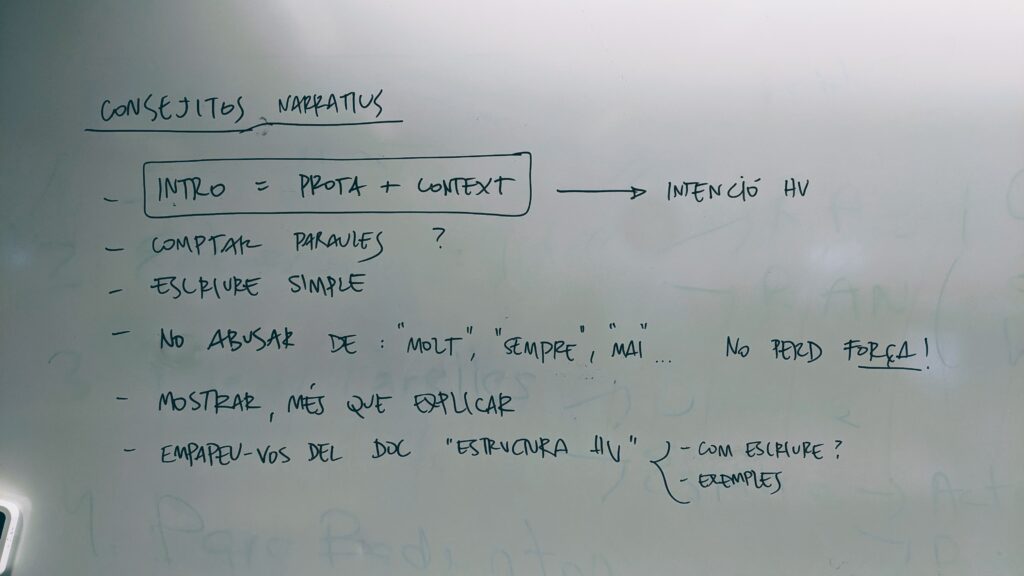 CONSEJITOS NARRATIUS
- INTRO = PROTA + CONTEXT → INTENCIÓ HV
- COMPTAR PARAULES ?
- ESCRIURE SIMPLE
- NO ABUSAR DE : "MOLT", "SEMPRE", "MAI"... NO PERD FORÇA!
- MOSTRAR, MÉS QUE EXPLICAR
- EMPAPEU-VOS DEL DOC "ESTRUCTURA HV" - COM ESCRIURE ?
- EXEMPLES